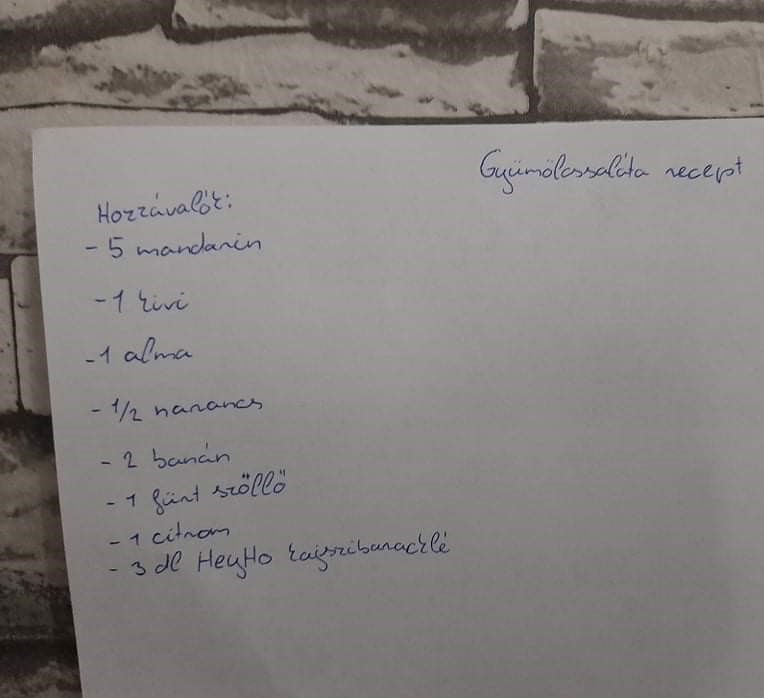 Gyümölcssaláta recept
Hozzávalók:
- 5 mandarin
- 1 kivi
- 1 alma
- 1/2 narancs
- 2 banán
- 1 fürt szőllő
- 1 citrom
- 3 dl HeyHo kajszibaracklé